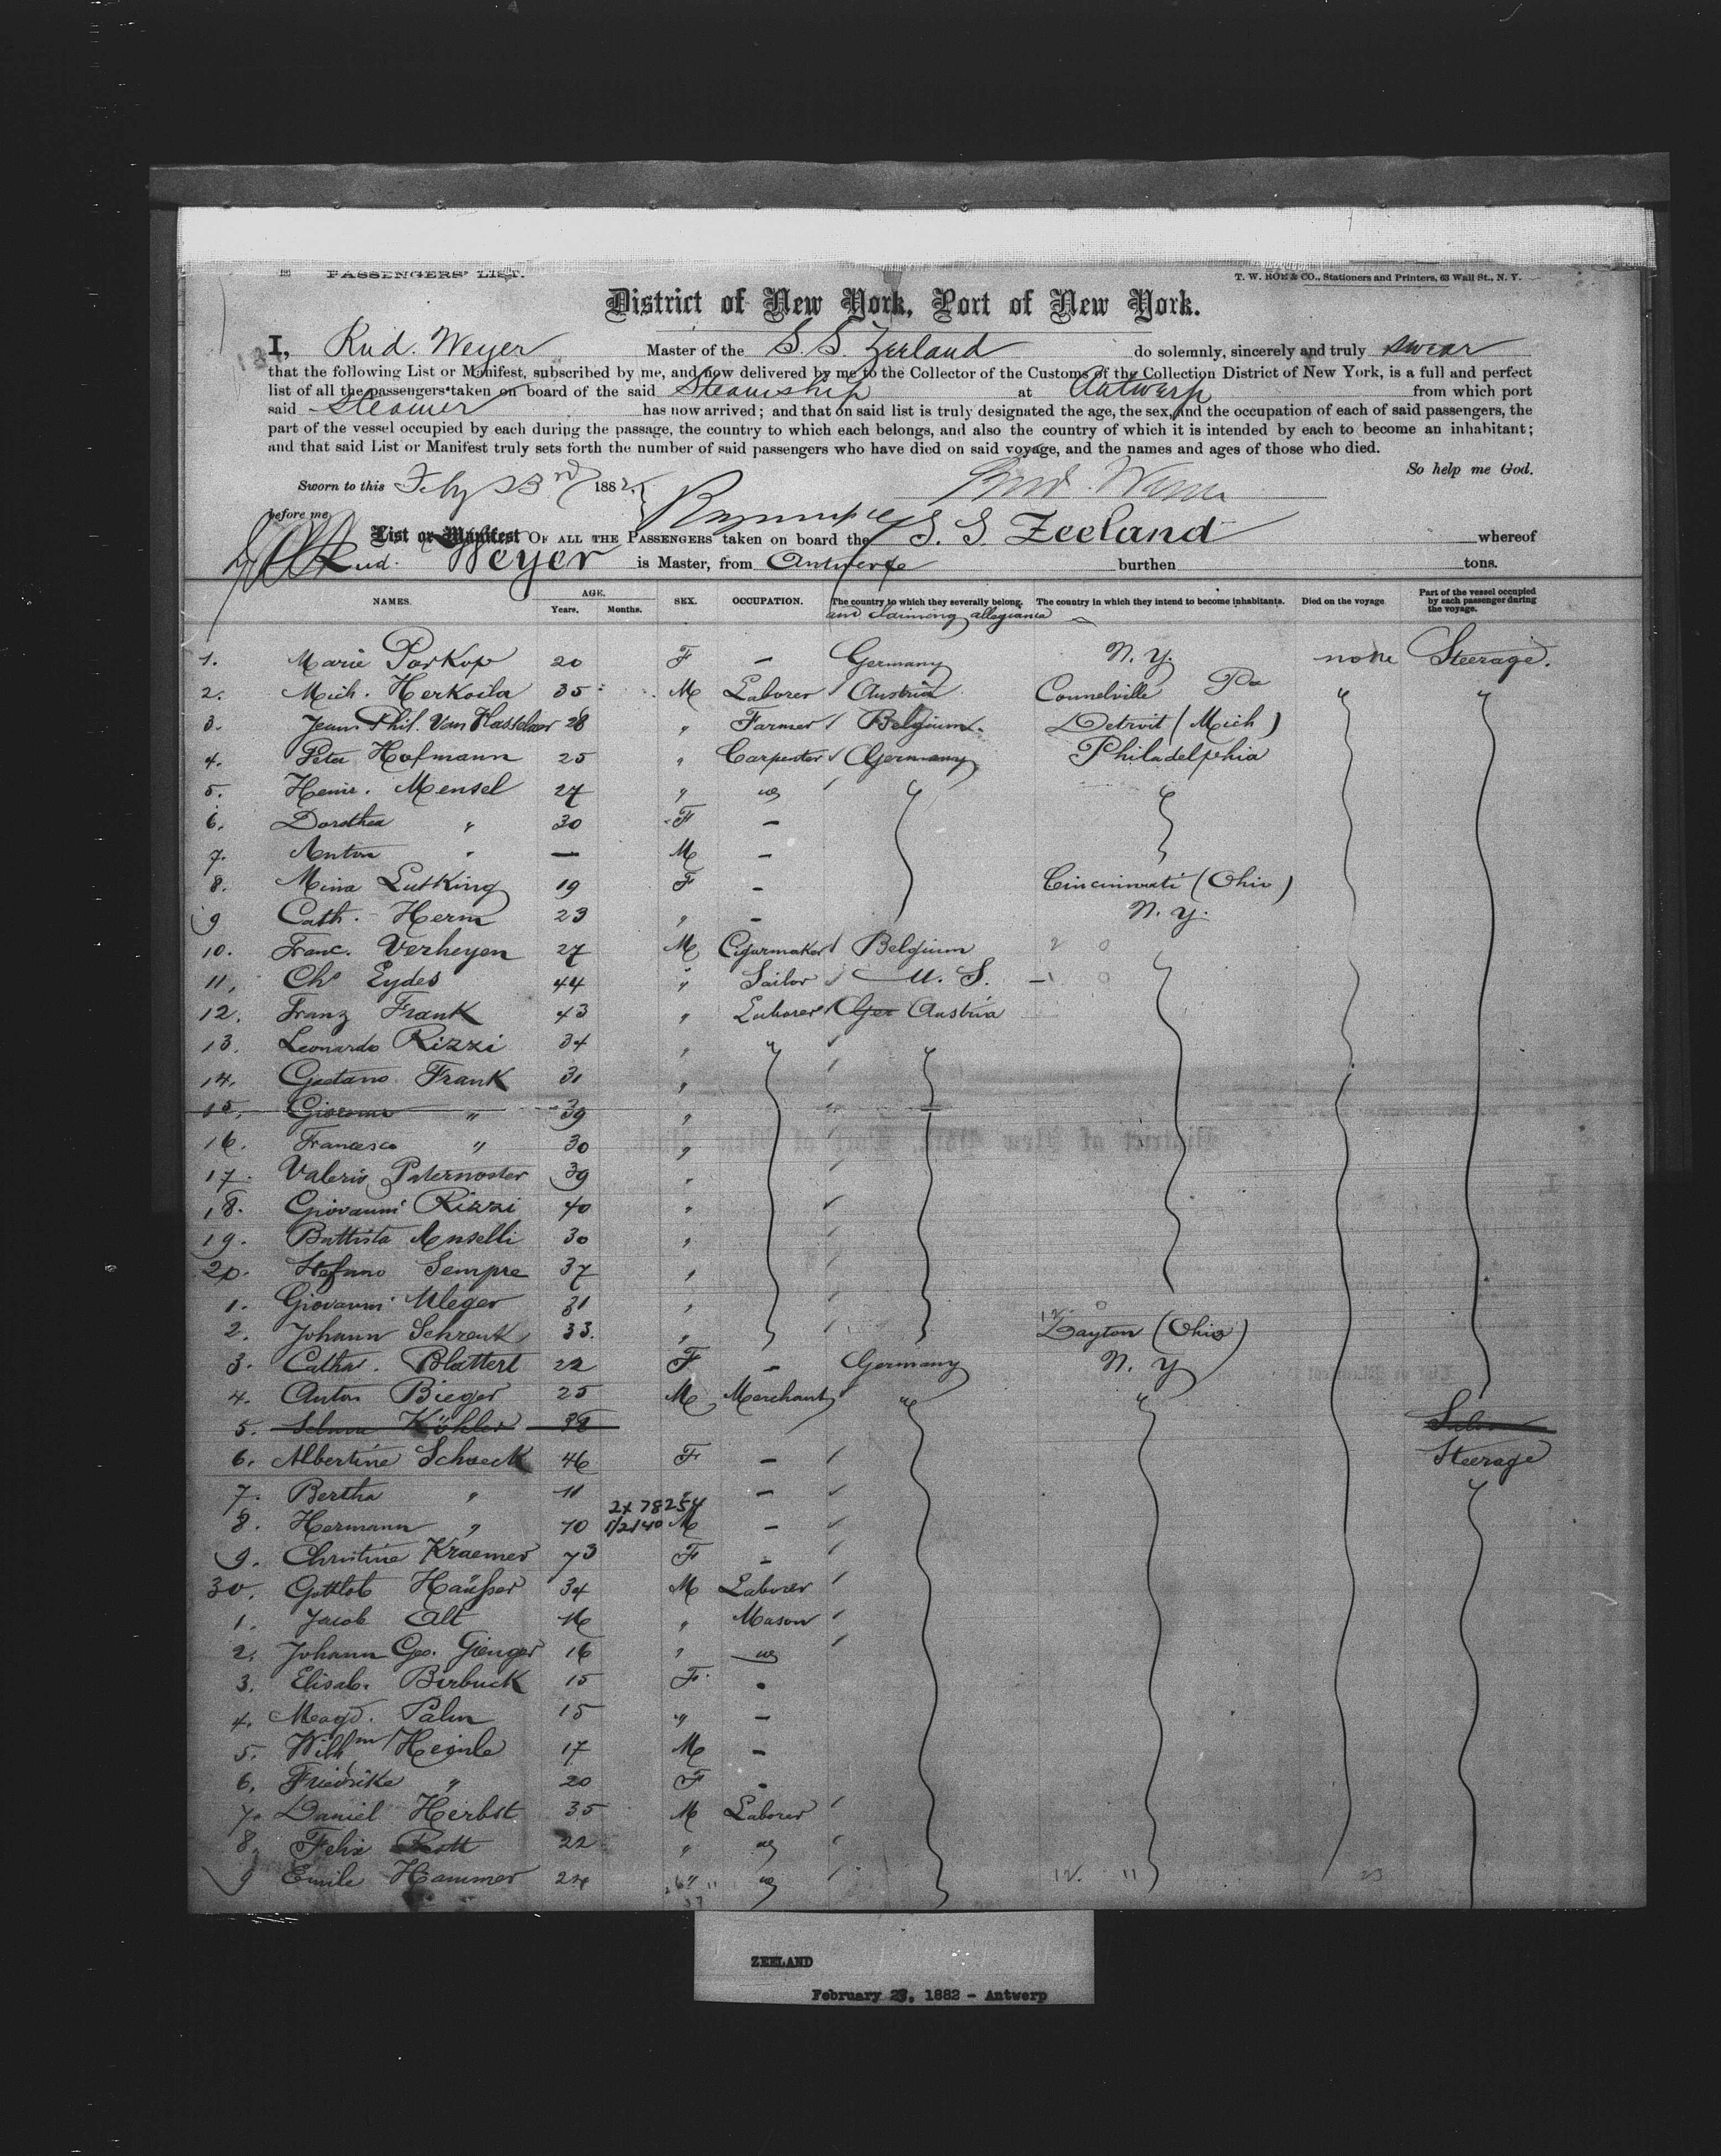 PASSENGERS' LIST.
T. W. ROE & CO., Stationers and Printers, 63 Wall St., N. Y.
District of New York, Port of New York.
I, Rud. Weyer Master of the S. S. Zeeland do solemnly, sincerely and truly swear
that the following List or Manifest, subscribed by me, and now delivered by me to the Collector of the Customs of the Collection District of New York, is a full and perfect
list of all the passengers taken on board of the said Steamship at Antwerp from which port
said Steamer has now arrived; and that on said list is truly designated the age, the sex, and the occupation of each of said passengers, the
part of the vessel occupied by each during the passage, the country to which each belongs, and also the country of which it is intended by each to become an inhabitant;
and that said List or Manifest truly sets forth the number of said passengers who have died on said voyage, and the names and ages of those who died.
So help me God.
Sworn to this Feby 23rd 1882.
before me
List or Manifest OF ALL THE PASSENGERS taken on board the S. S. Zeeland whereof
Rud. Weyer is Master, from Antwerp burthen tons.
NAMES. AGE. Years. Months. SEX. OCCUPATION. The country to which they severally belong. and claiming allegiance The country in which they intend to become inhabitants. Died on the voyage Part of the vessel occupied by each passenger during the voyage.
1. Marie Porkop 20 F — Germany N. Y. none Steerage.
2. Mich. Herkoila 35 M Laborer Austria Connelville Pa
3. Jean Phil. Van Hasselaer 28 " Farmer Belgium Detroit (Mich)
4. Peter Hofmann 25 " Carpenter Germany Philadelphia
5. Heinr. Mensel 27 "
6. Dorothea " 30 F —
7. Anton " — M —
8. Mina Lutking 19 F — Cincinnati (Ohio)
9 Cath. Herm 23 " — N. Y.
10. Franc. Verheyen 27 M Cigarmaker Belgium
11. Chs Eydes 44 " Sailor U. S.
12. Franz Frank 43 " Laborer Ger Austria
13. Leonardo Rizzi 34 "
14. Gaetano Frank 31 "
15. Giacomo " 39 "
16. Francesco " 30 "
17. Valerio Paternoster 39 "
18. Giovanni Rizzi 40 "
19. Battista Anselli 30 "
20. Stefano Sempre 37 "
1. Giovanni Uleger 31 "
2. Johann Schrenk 33. " Dayton (Ohio)
3. Catha. Blattert 22 F — Germany N. Y
4. Anton Bieger 25 M Merchant
5. Selma Köhler 38 Salon
6. Albertine Schoeck 46 F — Steerage
7. Bertha " 11 " —
2x 78254
8. Hermann " 10 1/2/40 M —
9. Christine Kraemer 73 F —
30. Gottlob Haüßer 34 M Laborer
1. Jacob Alt 16 " Mason
2. Johann Geo. Gienger 16 "
3. Elisab. Birbuck 15 F
4. Magd. Palm 15 " —
5. Wilhm Heinle 17 M —
6. Friedrike " 20 F
7. Daniel Herbst 35 M Laborer
8. Felix Rott 22 "
9 Emile Hammer 24 "
ZEELAND
February 23, 1882 - Antwerp